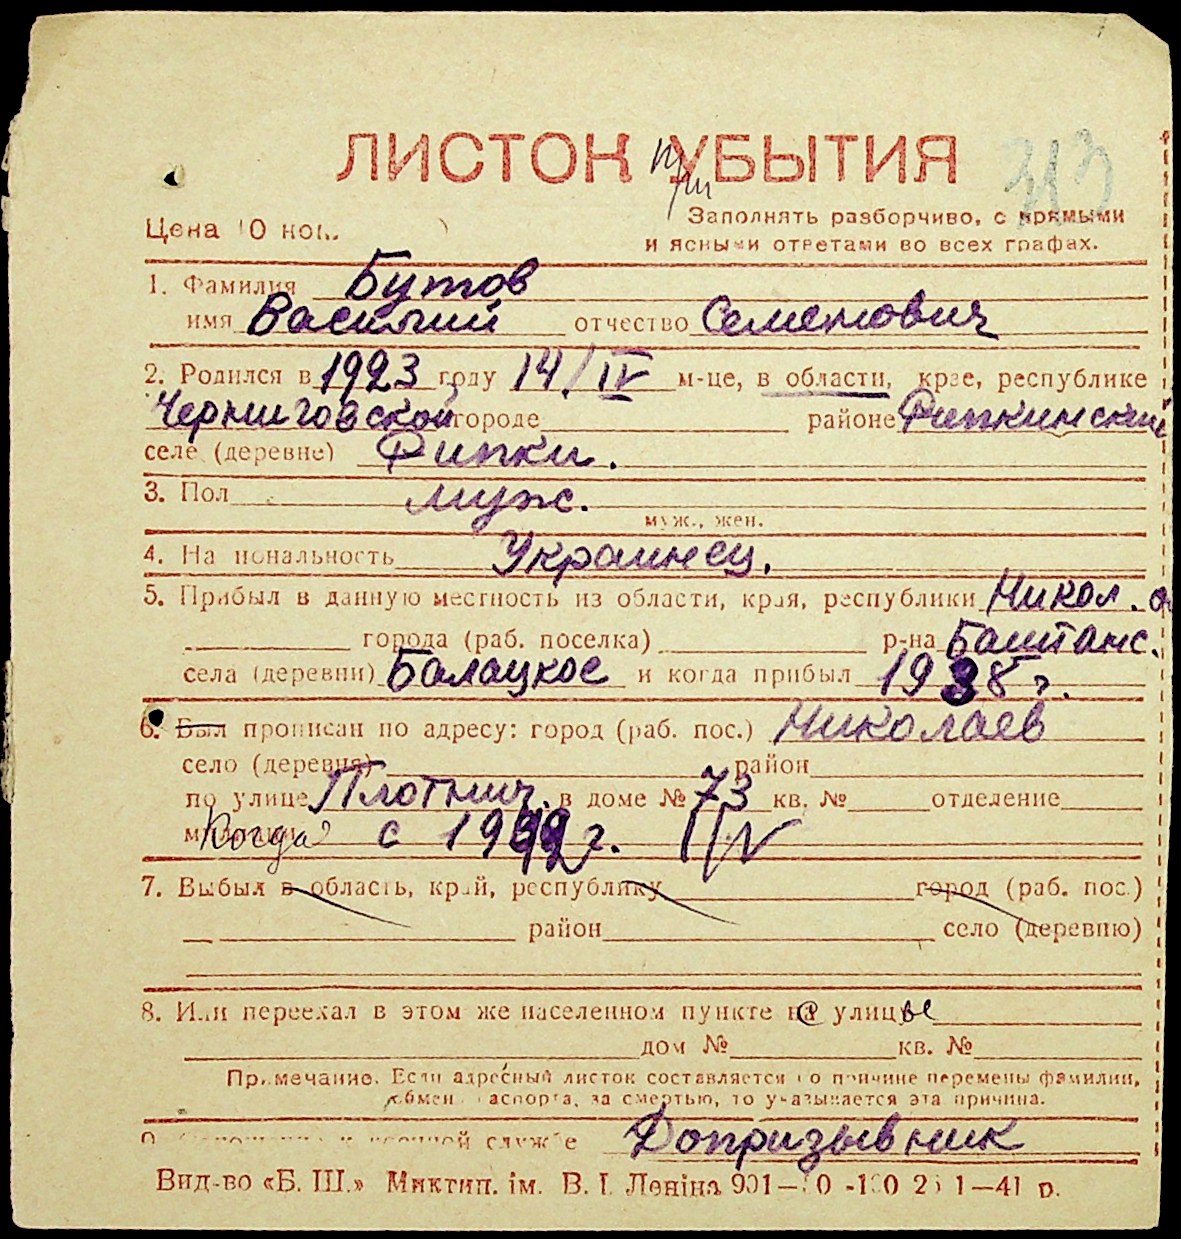 ЛИСТОК УБЫТИЯ
313
Цена 10 коп.
Заполнять разборчиво, с прямыми
и ясными ответами во всех графах.
1. Фамилия Бутов
имя Василий отчество Семенович
2. Родился в 1923 году 14/IV м-це, в области, крае, республике
Черниговской городе районе Рипкинский
селе (деревне) Рипки.
3. Пол муж.
муж., жен.
4. Национальность Украинец.
5. Прибыл в данную местность из области, края, республики Никол.
города (раб. поселка) р-на Баштанс.
села (деревни) Балацкое и когда прибыл 1938 г.
6. Был прописан по адресу: город (раб. пос.) Николаев
село (деревня) район
по улице Плотнич. в доме № 73 кв. № отделение
милиции Когда с 19 г.
7. Выбыл в область, край, республику город (раб. пос.)
район село (деревню)
8. Или переехал в этом же населенном пункте с улицы
дом № кв. №
Примечание. Если адресный листок составляется по причине перемены фамилии,
обмена паспорта, за смертью, то указывается эта причина.
9. Отношение к военной службе Допризывник
Вид-во «Б. Ш.» Миктип. ім. В. І. Леніна 1—41 р.